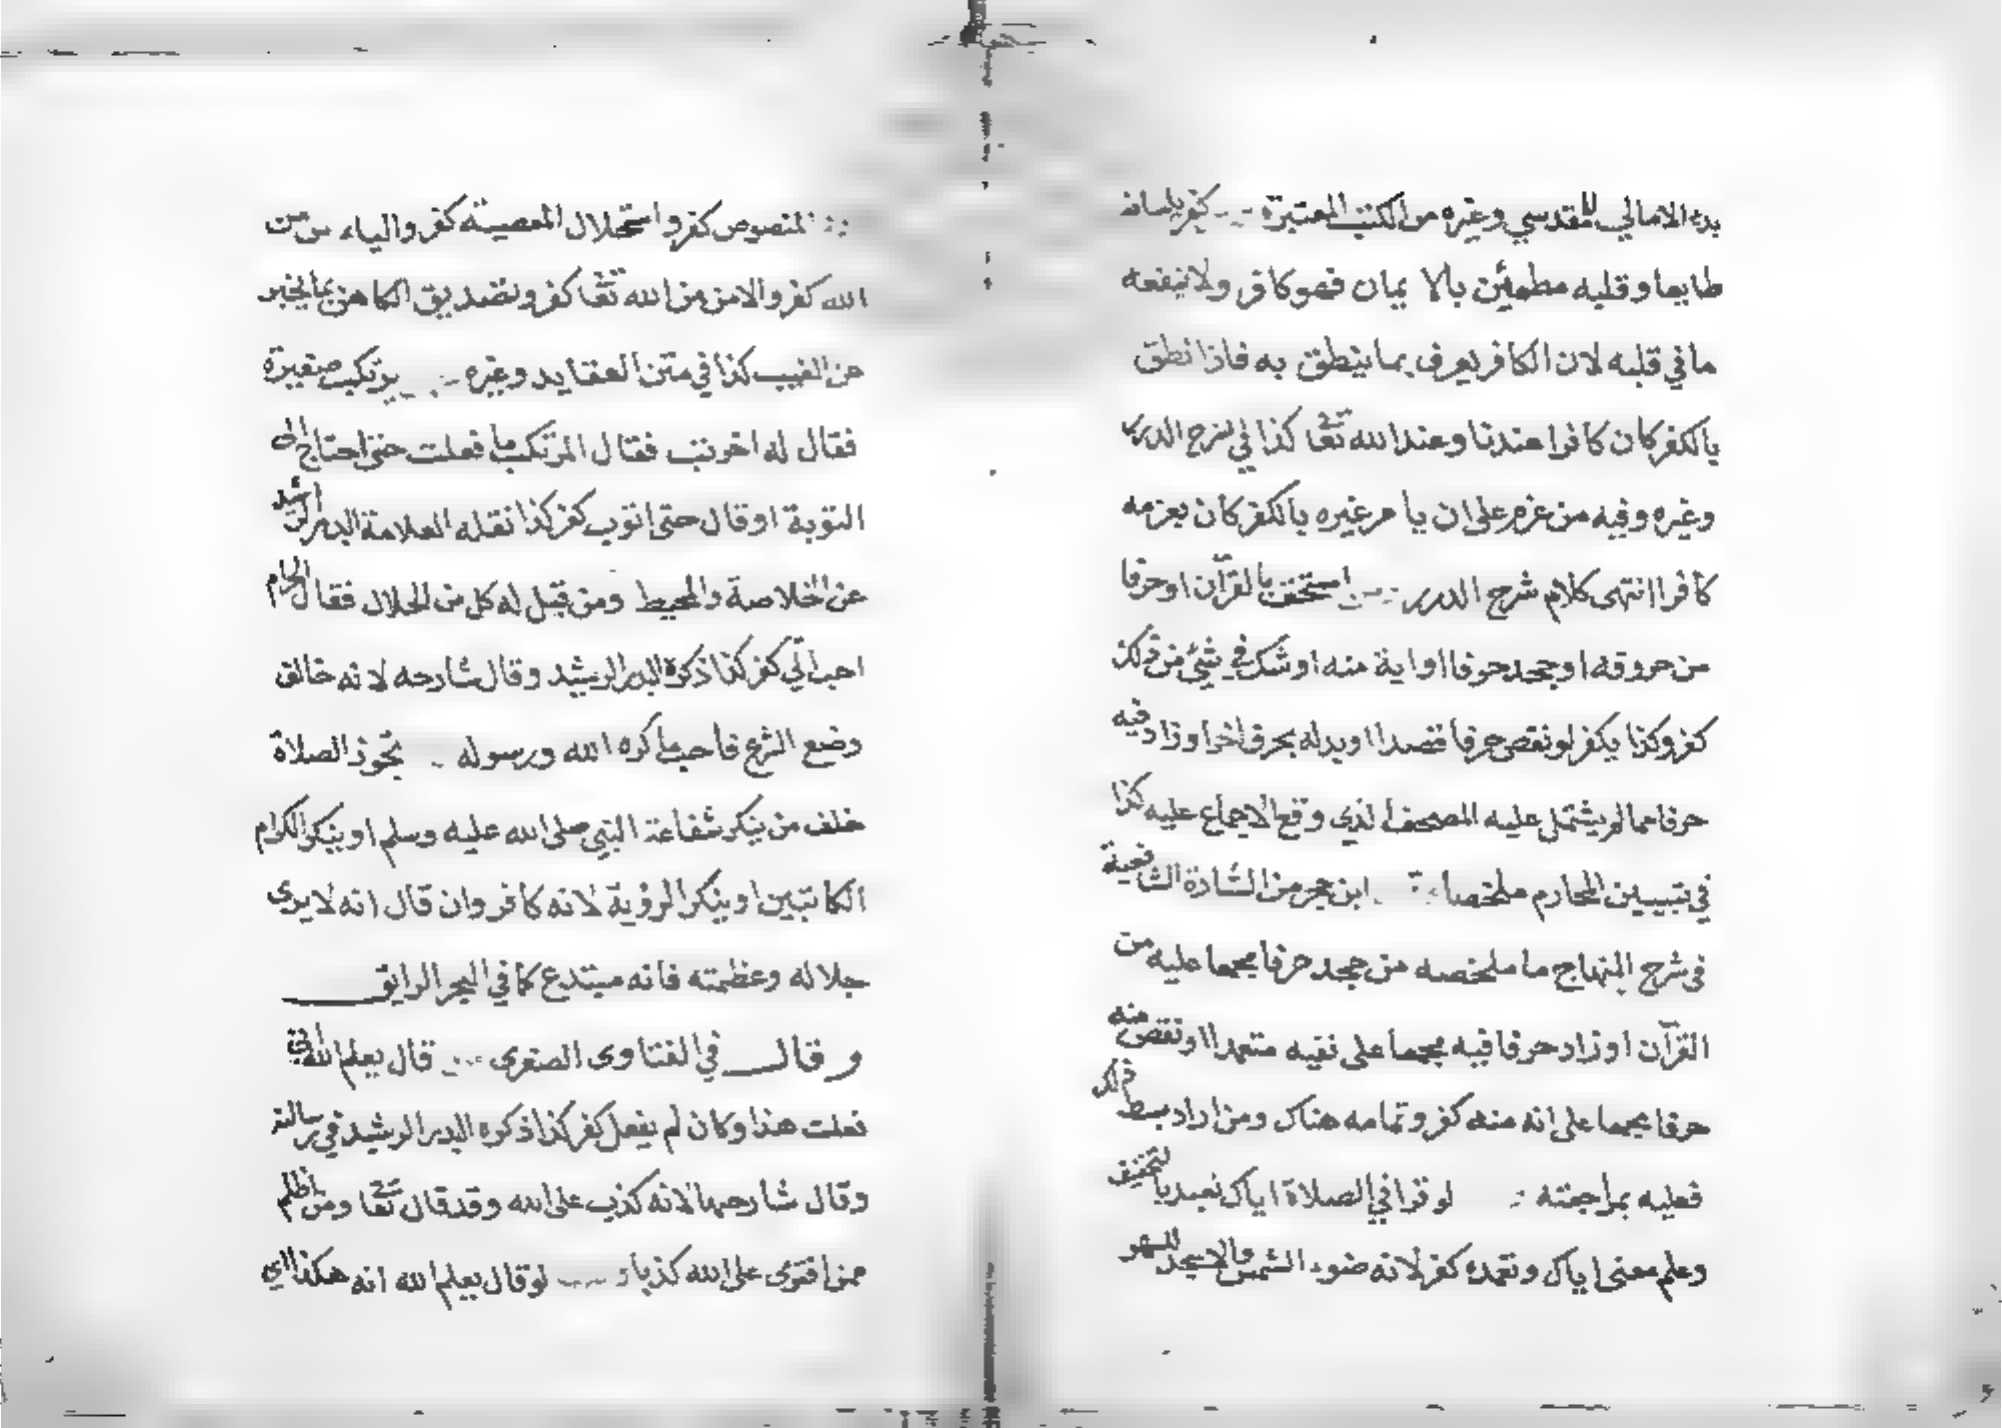 بدء الامالي للمقدسي وغيره من الكتب المعتبرة كفر بلسانه
طايعا وقلبه مطمئن بالا يمان فهو كافر ولا ينفعه
ما في قلبه لان الكافر يعرف بما ينطق به فاذا نطق
بالكفر كان كافرا عندنا وعند الله تعا كذا في شرح الدرر
وغيره وفيه من عزم على ان يامر غيره بالكفر كان بعزمه
كافرا انتهى كلام شرح الدرر من استخف بالقرآن او حرفا
من حروفه او جحد حرفا او اية منه او شك في شيئ من ذلك
كفر وكذا يكفر لو نقص حرفا قصدا او بدله بحرف اخر او زاد فيه
حرفا مما لم يشتمل عليه المصحف الذي وقع الاجماع عليه كذا
في تبيين المحارم ملخصا ابن حجر من السادة الشافعية
في شرح المنهاج ما ملخصه من جحد حرفا مجمعا عليه من
القرآن او زاد حرفا فيه مجمعا على نفيه متعمدا او نقص منه
حرفا مجمعا على انه منه كفر وتمامه هناك ومن اراد بسط ذلك
فعليه بمراجعته لو قرا في الصلاة اياك نعبد بالتخفيف
وعلم معنى اياك وتعمده كفر لانه ضوء الشمس والا سجد للسهو
المنصوص كفر واستحلال المعصية كفر والياس من
الله كفر والامن من الله تعا كفر وتصديق الكاهن بما يخبر
عن الغيب كذا في متن العقايد وغيره يرتكب صغيرة
فقال له اخر تب فقال المرتكب ما فعلت حتى احتاج الى
التوبة او قال حتى اتوب كفر كذا نقله العلامة البدر الرشيد
عن الخلاصة والمحيط ومن قيل له كل من الحلال فقال الحرام
احب الي كفر كذا ذكره البدر الرشيد وقال شارحه لانه خالف
وضع الشرع فاحب ما كره الله ورسوله تجوز الصلاة
خلف من ينكر شفاعة النبي صلى الله عليه وسلم او ينكر الكرام
الكاتبين او ينكر الرؤية لانه كافر وان قال انه لا يرى
جلاله وعظمته فانه مبتدع كما في البحر الرايق
وقال في الفتاوى الصغرى قال يعلم الله اني
فعلت هذا وكان لم يفعل كفر كذا ذكره البدر الرشيد في رسالته
وقال شارحها لانه كذب على الله وقد قال تعا ومن اظلم
ممن افترى على الله كذبا لو قال يعلم الله انه هكذا